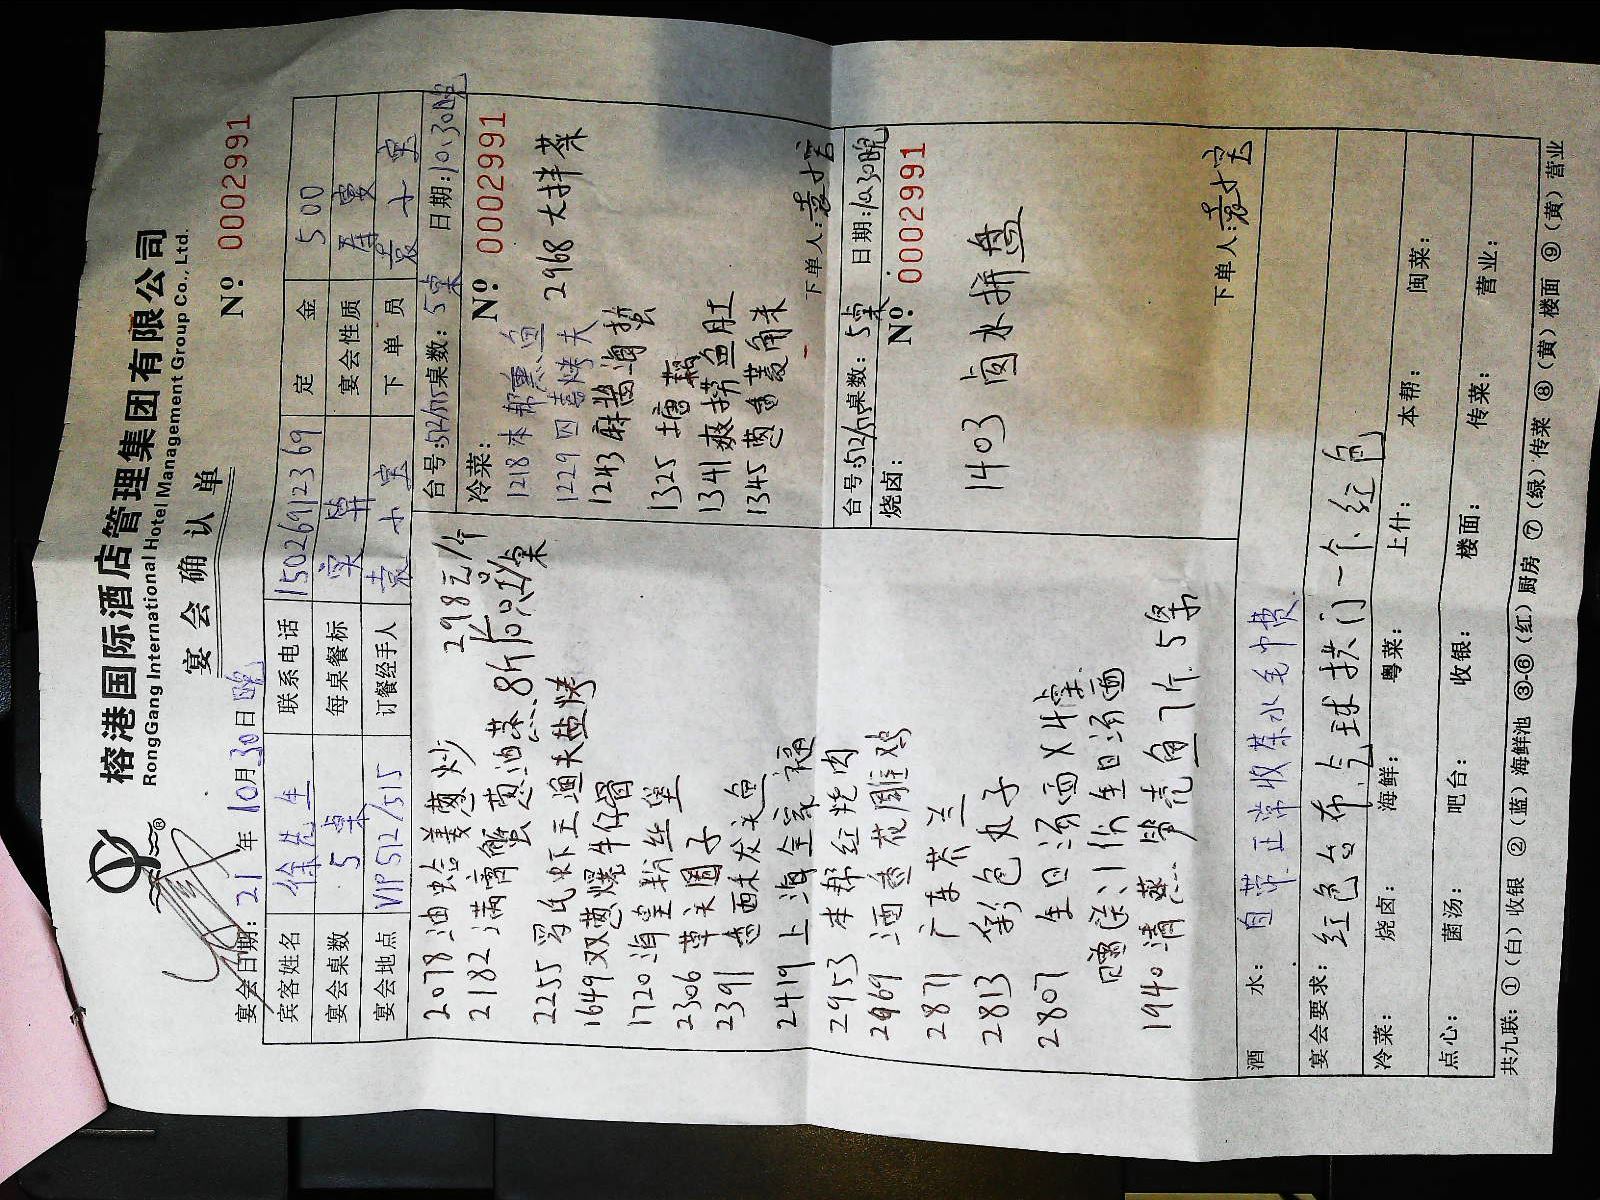 榕港国际酒店管理集团有限公司
RongGang International Hotel Management Group Co., Ltd.
宴会确认单
宴会日期: 21 年 10月 30日 晚
Nº 0002991
宾客姓名 徐先生 联系电话 15026912369 定金 500
宴会桌数 5桌 每桌餐标 实算 宴会性质
宴会地点 VIP512/515 订餐经手人 袁小宝 下单员 袁小宝
2078 油蛤姜葱炒 298元/斤
2182 满膏蟹葱油蒸 8斤10只/桌
2255
1649 双葱爆牛仔骨
1720 海皇粉丝堡
2306 草头圈子
2391
2419 上海全家福
2953 本帮红烧肉
2969 酒香花雕鸡
2871 广东芥兰
2813 彩色丸子
2807 生日汤面×4桌
赠送:1份生日汤面
1940 清蒸 笋壳鱼 7斤 5条
台号:512/515 桌数: 5桌 日期:10.30晚
冷菜:
Nº 0002991
1218 本帮熏鱼
1229 四喜烤夫
1243 麻酱海蜇
2968 大拌菜
1325 塘藕
1341 爽捞鱼肚
1345 葱香菱角米
下单人:袁小宝
台号:512/515 桌数: 5桌 日期:10.30晚
烧卤:
Nº 0002991
1403 卤水拼盘
下单人:袁小宝
酒水: 自带 正常收茶水毛巾费
宴会要求: 红色台布,气球拱门一个 红色
冷菜: 烧卤: 海鲜: 粤菜: 上什: 本帮: 闽菜:
点心: 菌汤: 吧台: 收银: 楼面: 传菜: 营业:
共九联: ①(白)收银 ②(蓝)海鲜池 ③-⑥(红)厨房 ⑦(绿)传菜 ⑧(黄)楼面 ⑨(黄)营业